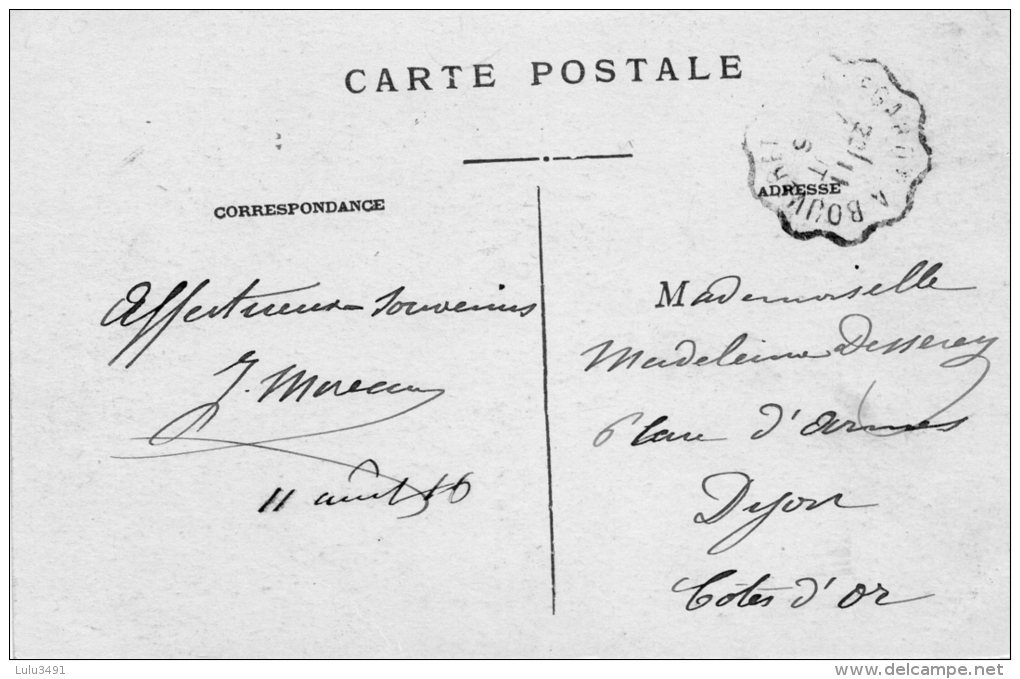 CARTE POSTALE
CORRESPONDANCE
ADRESSE
A BOUK
Affectueux souvenirs
J. Moreau
11 août 16
Mademoiselle
Madeleine Desserey
6 Place d'Armes
Dijon
Côtes d'Or
Lulu3491
delcampe.net